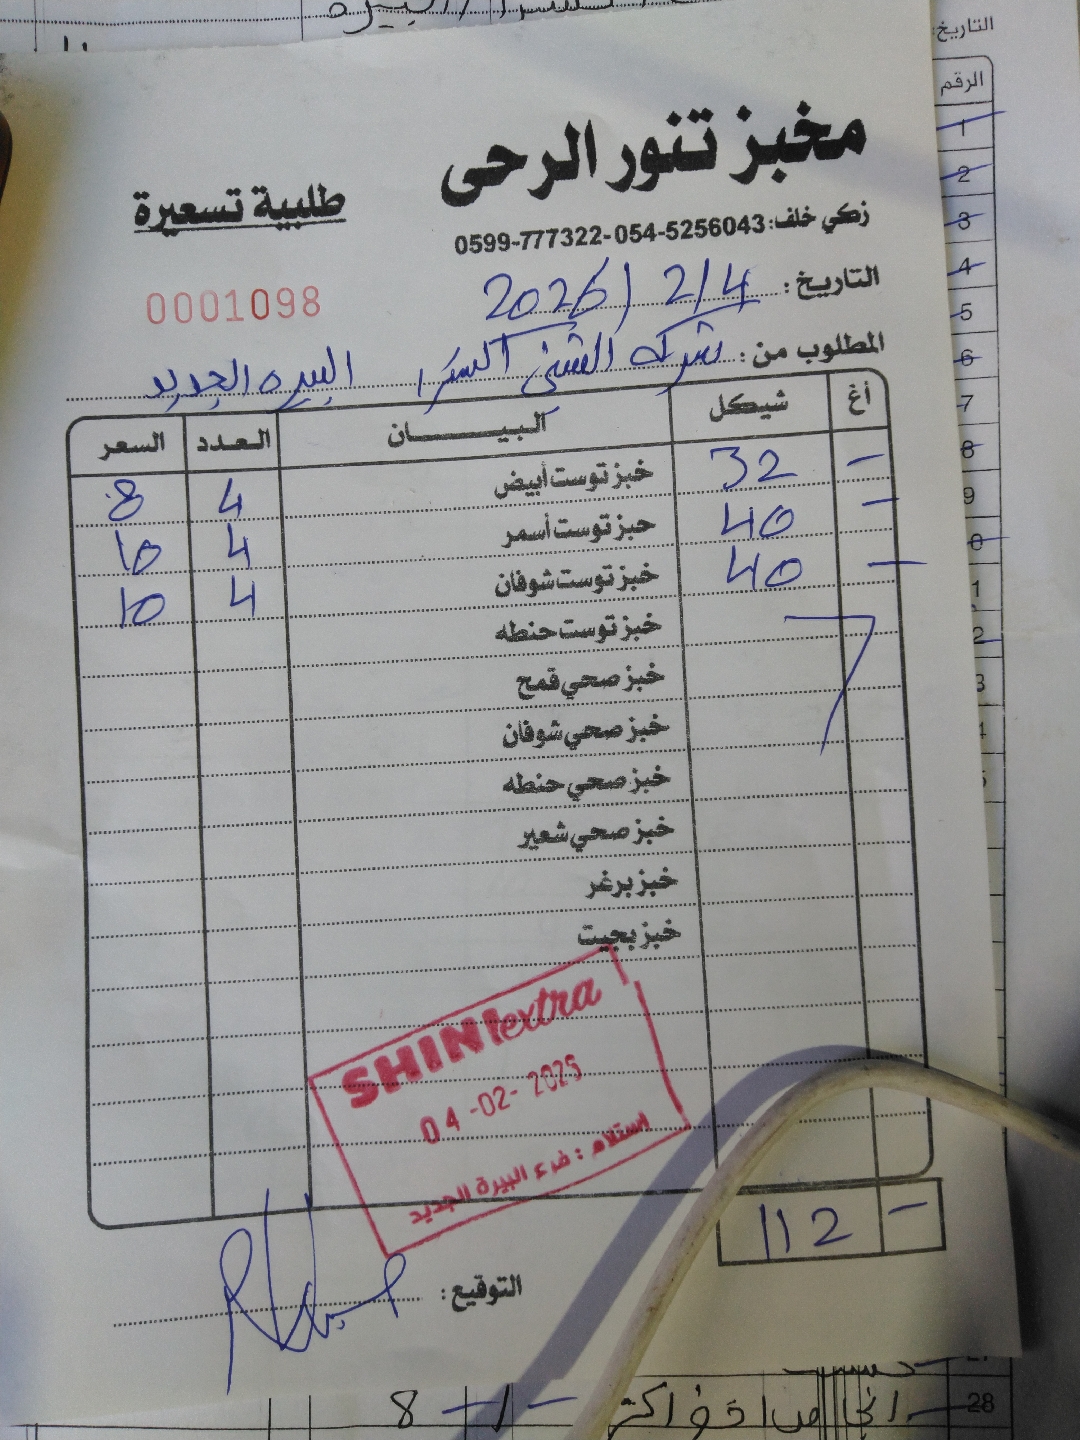 التاريخ:
الرقم
مخبز تنور الرحى
طلبية تسعيرة
زكي خلف: 054-5256043-0599-777322
0001098
التاريخ: 2026/2/4
المطلوب من: شركة الشني اكسترا البيره الجديد
السعر العدد البيــــــان شيكل أغ
8 4 خبز توست أبيض 32 -
10 4 خبز توست أسمر 40 -
10 4 خبز توست شوفان 40 -
خبز توست حنطه
خبز صحي قمح
خبز صحي شوفان
خبز صحي حنطه
خبز صحي شعير
خبز برغر
خبز بجيت
SHINI extra
04-02-2025
استلام : فرع البيرة الجديد
112 -
التوقيع:
28
8